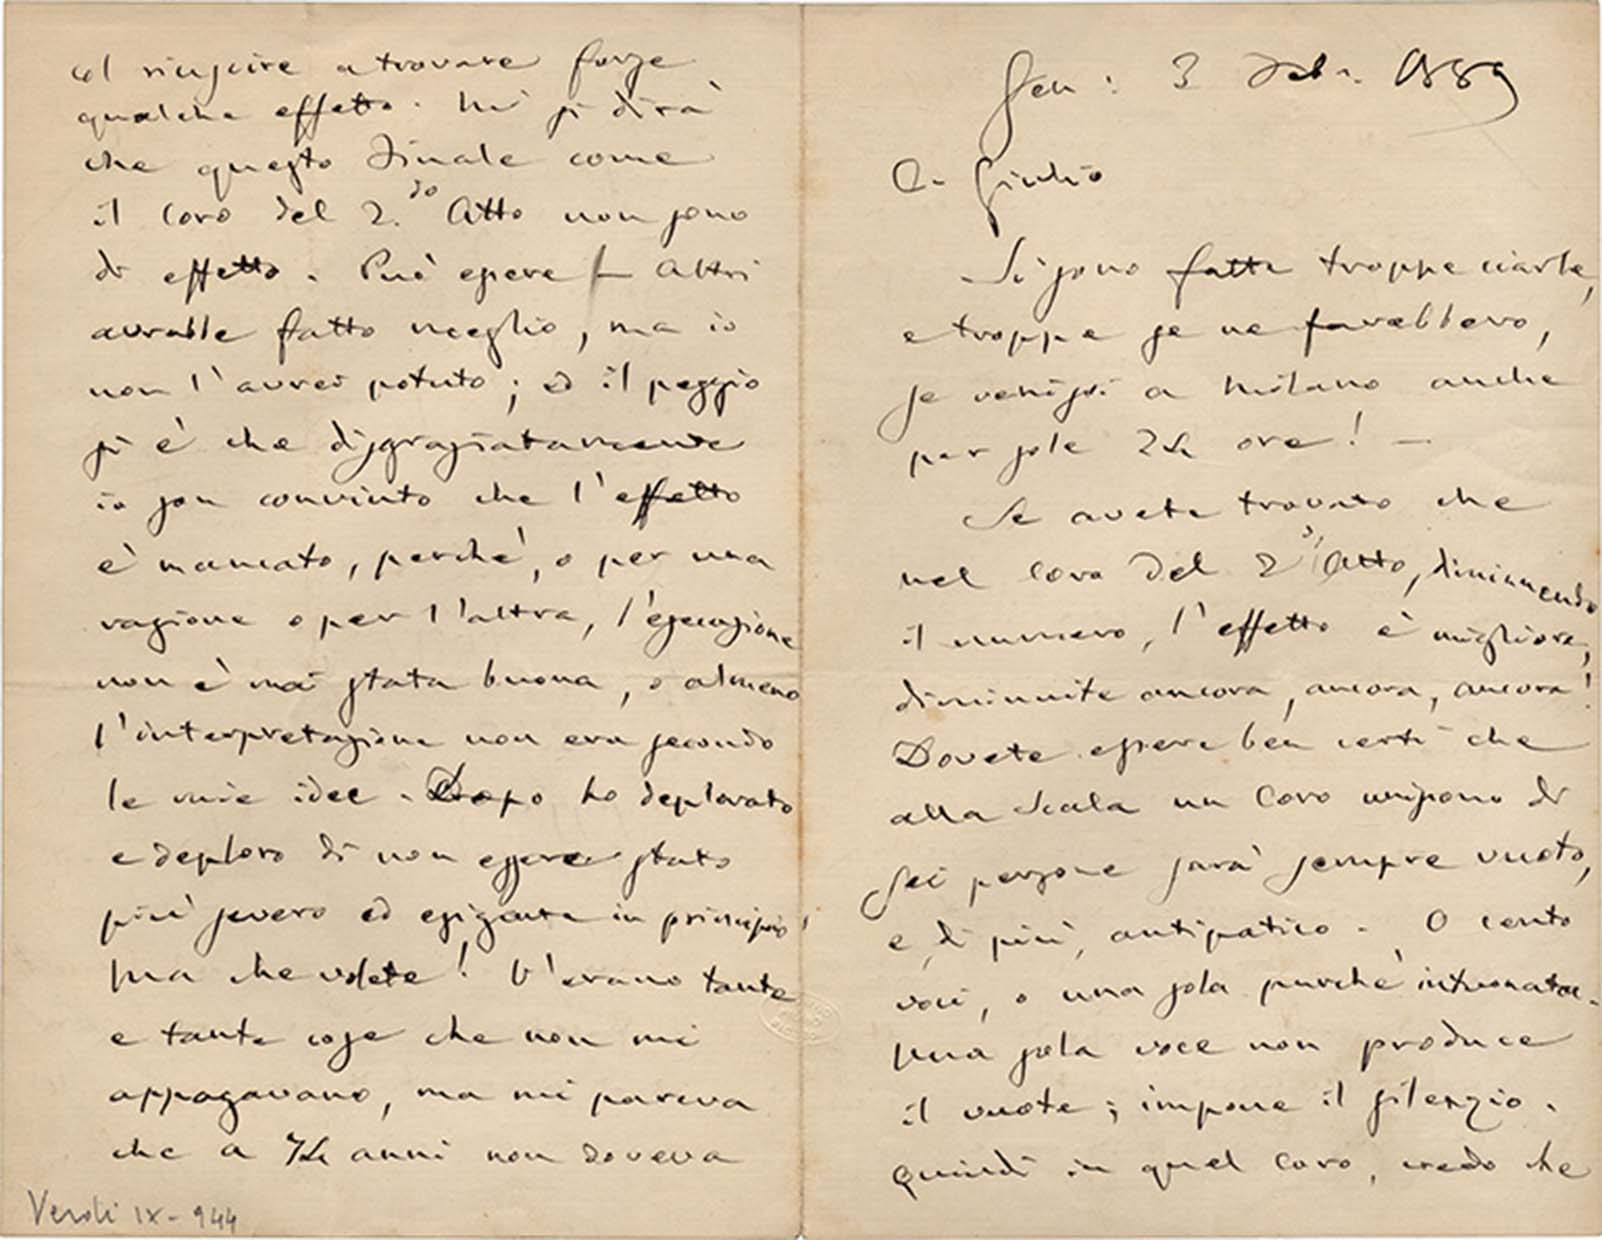 Gen: 3 Feb. 1889
C. Giulio
Si sono fatte troppe ciarle,
e troppe se ne farebbero,
se venissi a Milano anche
per sole 24 ore! —
Se avete trovato che
nel Coro del 2º Atto, diminuendo
il numero, l'effetto è migliore,
diminuite ancora, ancora, ancora!
Dovete essere ben certi che
alla Scala un Coro unisono di
sei persone sarà sempre vuoto,
e, di più, antipatico. O cento
voci, o una sola purchè intuonata.
Una sola voce non produce
il vuoto; impone il silenzio.
Quindi in quel Coro, credo che
ed riuscire a trovare forse
qualche effetto. Mi si dirà
che questo Finale come
il Coro del 2.do Atto non sono
di effetto. Può essere! – Altri
avrebbe fatto meglio, ma io
non l'avrei potuto; ed il peggio
si è che disgraziatamente
io son convinto che l'effetto
è mancato, perchè, o per una
ragione o per l'altra, l'esecuzione
non è mai stata buona, o almeno
l'interpretazione non era secondo
le mie idee. Dopo ho deplorato
e deploro di non essere stato
più severo ed esigente in principio!
Ma che volete! V'erano tante
e tante cose che non mi
appagavano, ma mi pareva
che a 74 anni non doveva
Verdi IX - 944